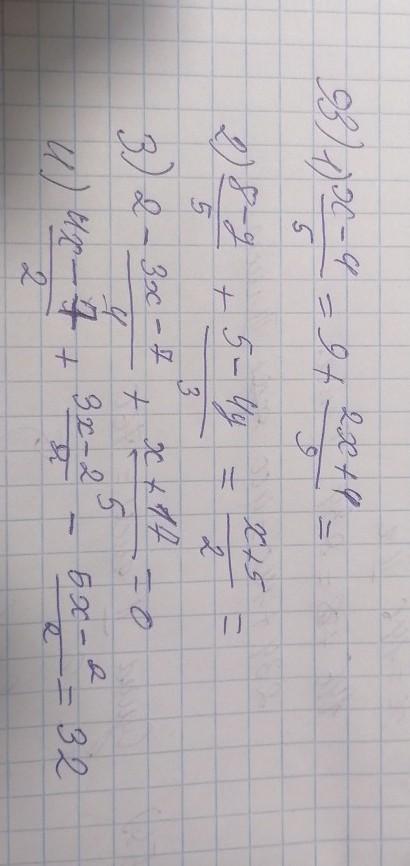 93) 1) x-4/5 = 9 + 2x+4/9 =
2) 8-y/5 + 5-4y/3 = x+5/2 =
3) 2 - 3x-7/4 + x+17/5 = 0
4) 4x-7/2 + 3x-2/2 - 5x-2/2 = 32